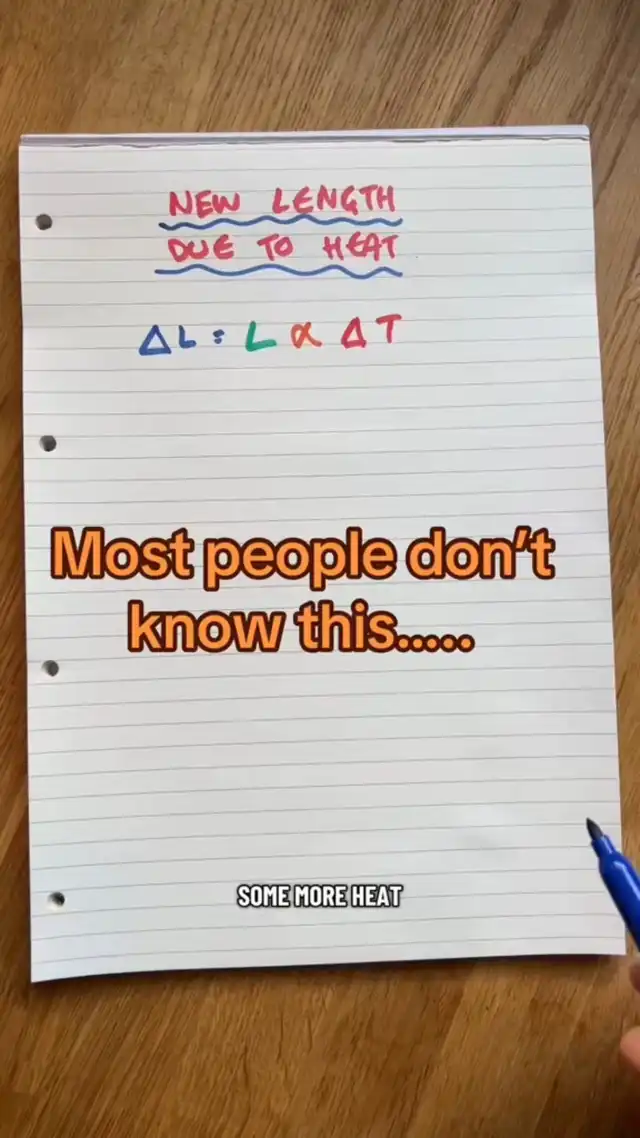 NEW LENGTH
DUE TO HEAT
ΔL = L α ΔT
Most people don't
know this.....
SOME MORE HEAT